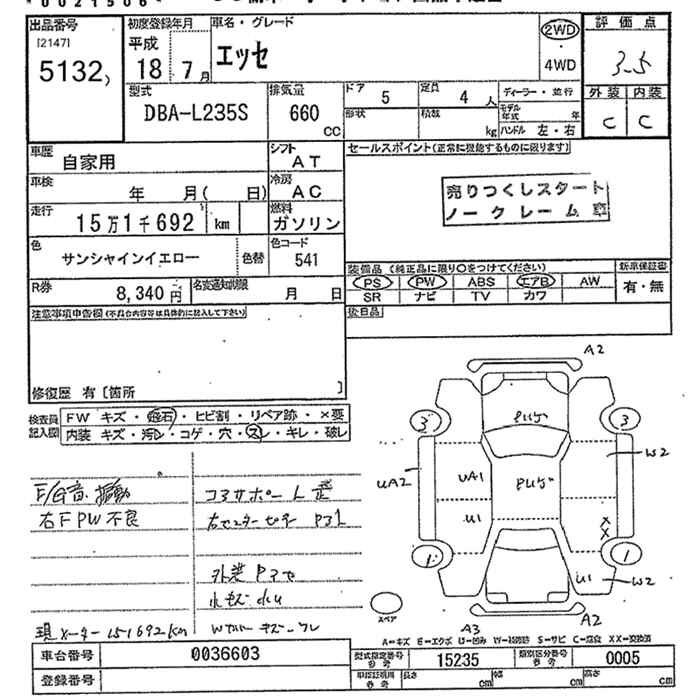 0021506
出品番号
[2147]
5132
初度登録年月
平成
18 7月
車名・グレード
エッセ
2WD
・
4WD
評価点
3.5
外装 内装
C C
型式
DBA-L235S
排気量
660
CC
ドア 5
定員 4 人
形状
積載 kg
ディーラー・並行
モデル年式 年
ハンドル 左・右
車歴 自家用
シフト AT
車検 年 月( 日)
冷房 AC
走行 15万1千692 km
燃料 ガソリン
色 サンシャインイエロー 色替
色コード 541
R券 8,340円
名変通知期限 月 日
セールスポイント(正常に機能するものに限ります)
売りつくしスタート
ノークレーム
装備品(純正品に限り○をつけてください)
PS PW ABS エアB AW
SR ナビ TV カワ
新車保証書
有・無
後日品
注意事項申告欄(不具合内容等は具体的に記入して下さい)
修復歴 有[箇所 ]
検査員
記入図
FW キズ・飛石・ヒビ割・リペア跡・×要
内装 キズ・汚レ・コゲ・穴・スレ・キレ・破レ
E/G音、振動
右F PW不良
コアサポート
外装
現メーター151692km
A2
3 3
W2
UA2
UA1
U1
X
X
1 1
U1
W2
A3
A2
スペア
A=キズ E=エクボ U=凹み W=補修跡 S=サビ C=腐食 XX=交換済
車台番号 0036603
登録番号
型式指定番号
参考
15235
類別区分番号
参考
0005
車検証明用
参考
長さ cm
幅 cm
高さ cm